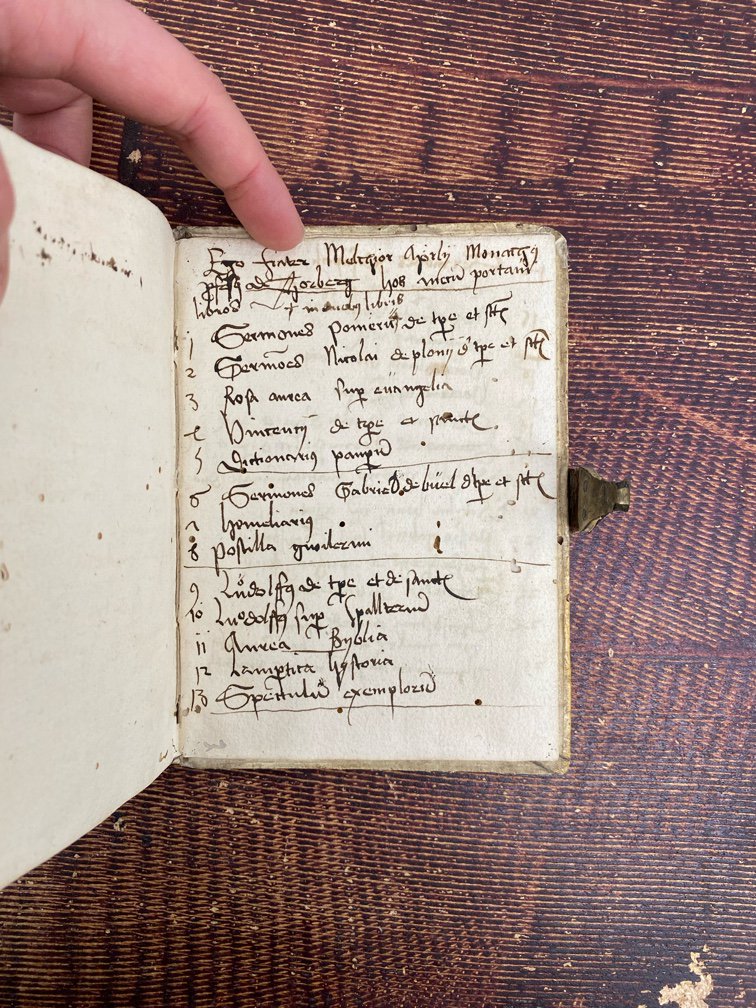 Ego frater Melchior Aprly Monachus
de Torberg hos mecum portavi
libros
in
1 Sermones Pomerii de tpe et sct
2 Sermões Nicolai de plonij d tpe et sct
3 Rosa aurea sup evangelia
4 Vincentij de tpe et sanct
5 Dictionarius paupeū
6 Sermones Gabriel de büel d tpe et sct
7 homeliarius
8 postilla gwilermi
9 Lůdolffus de tpe et de sanct
10 Luodolffus sup Spallteriū
11 Aurea Byblia
12 Lampertica hystoria
13 Speculū exemplorū